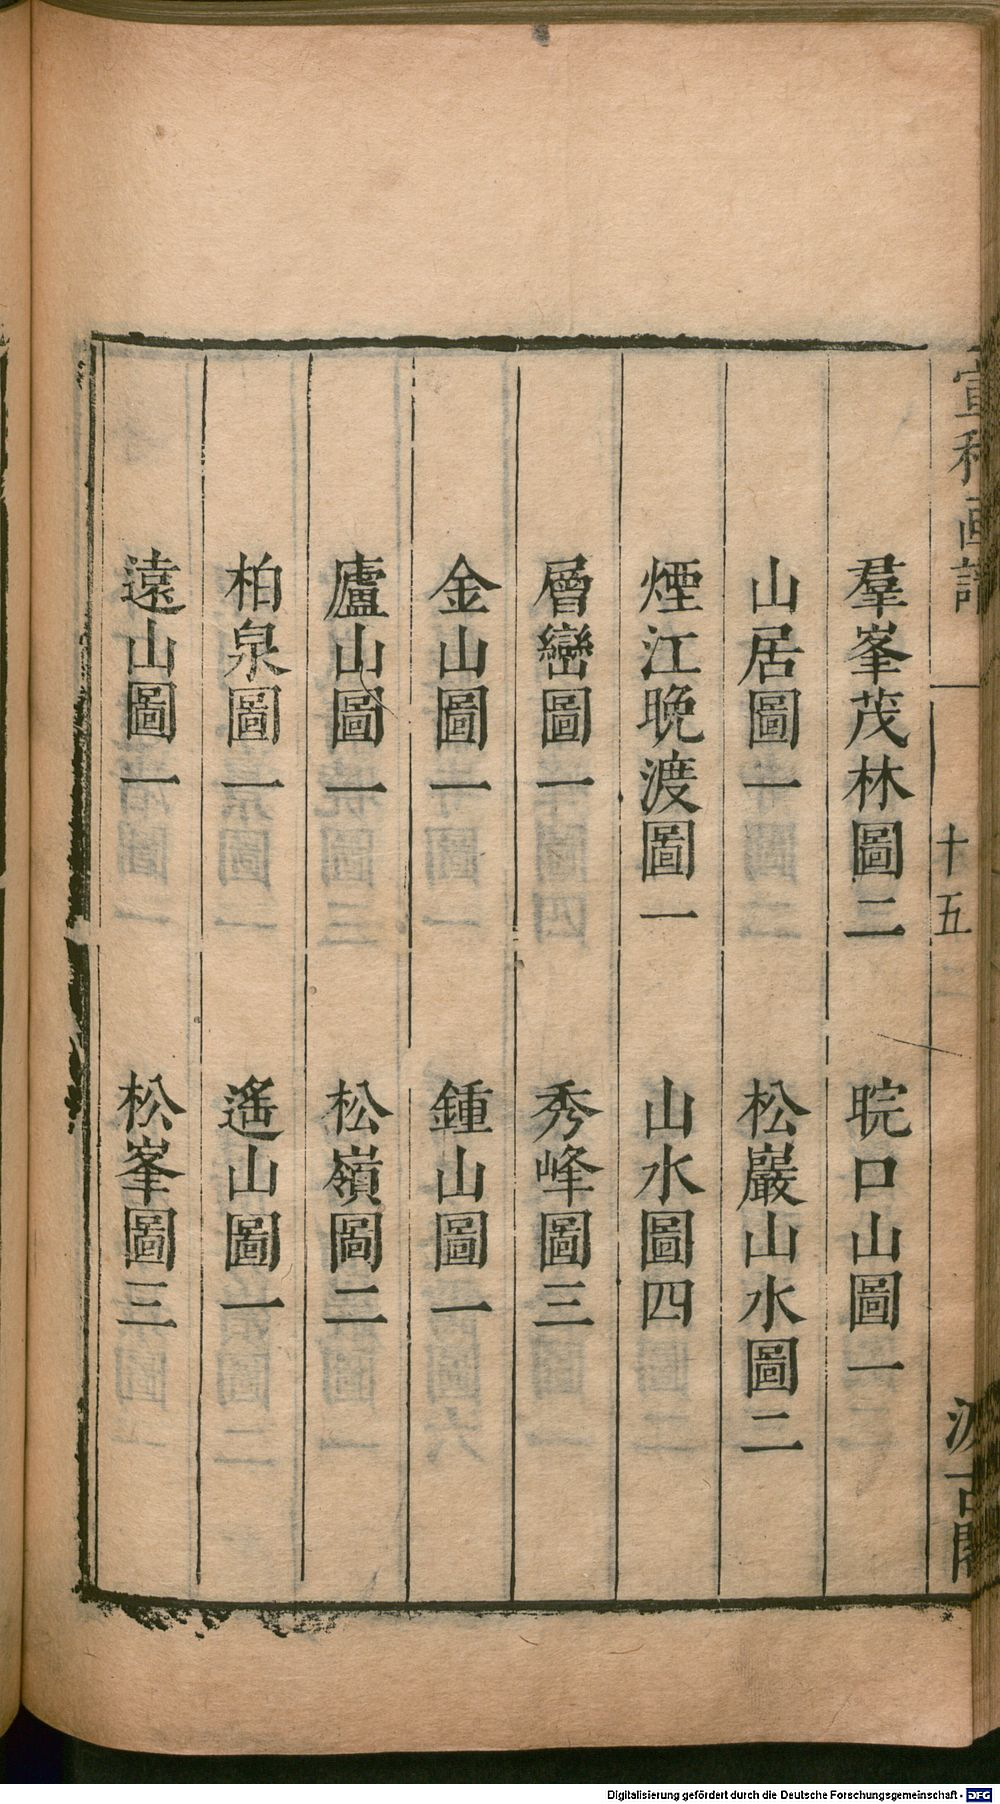 宣和画譜 十五 汲古閣
羣峯茂林圖二 晥口山圖一
山居圖一 松巖山水圖二
煙江晚渡圖一 山水圖四
層巒圖一 秀峰圖三
金山圖一 鍾山圖一
廬山圖一 松嶺圖二
柏泉圖一 遙山圖一
遠山圖一 松峯圖三
Digitalisierung gefördert durch die Deutsche Forschungsgemeinschaft - DFG